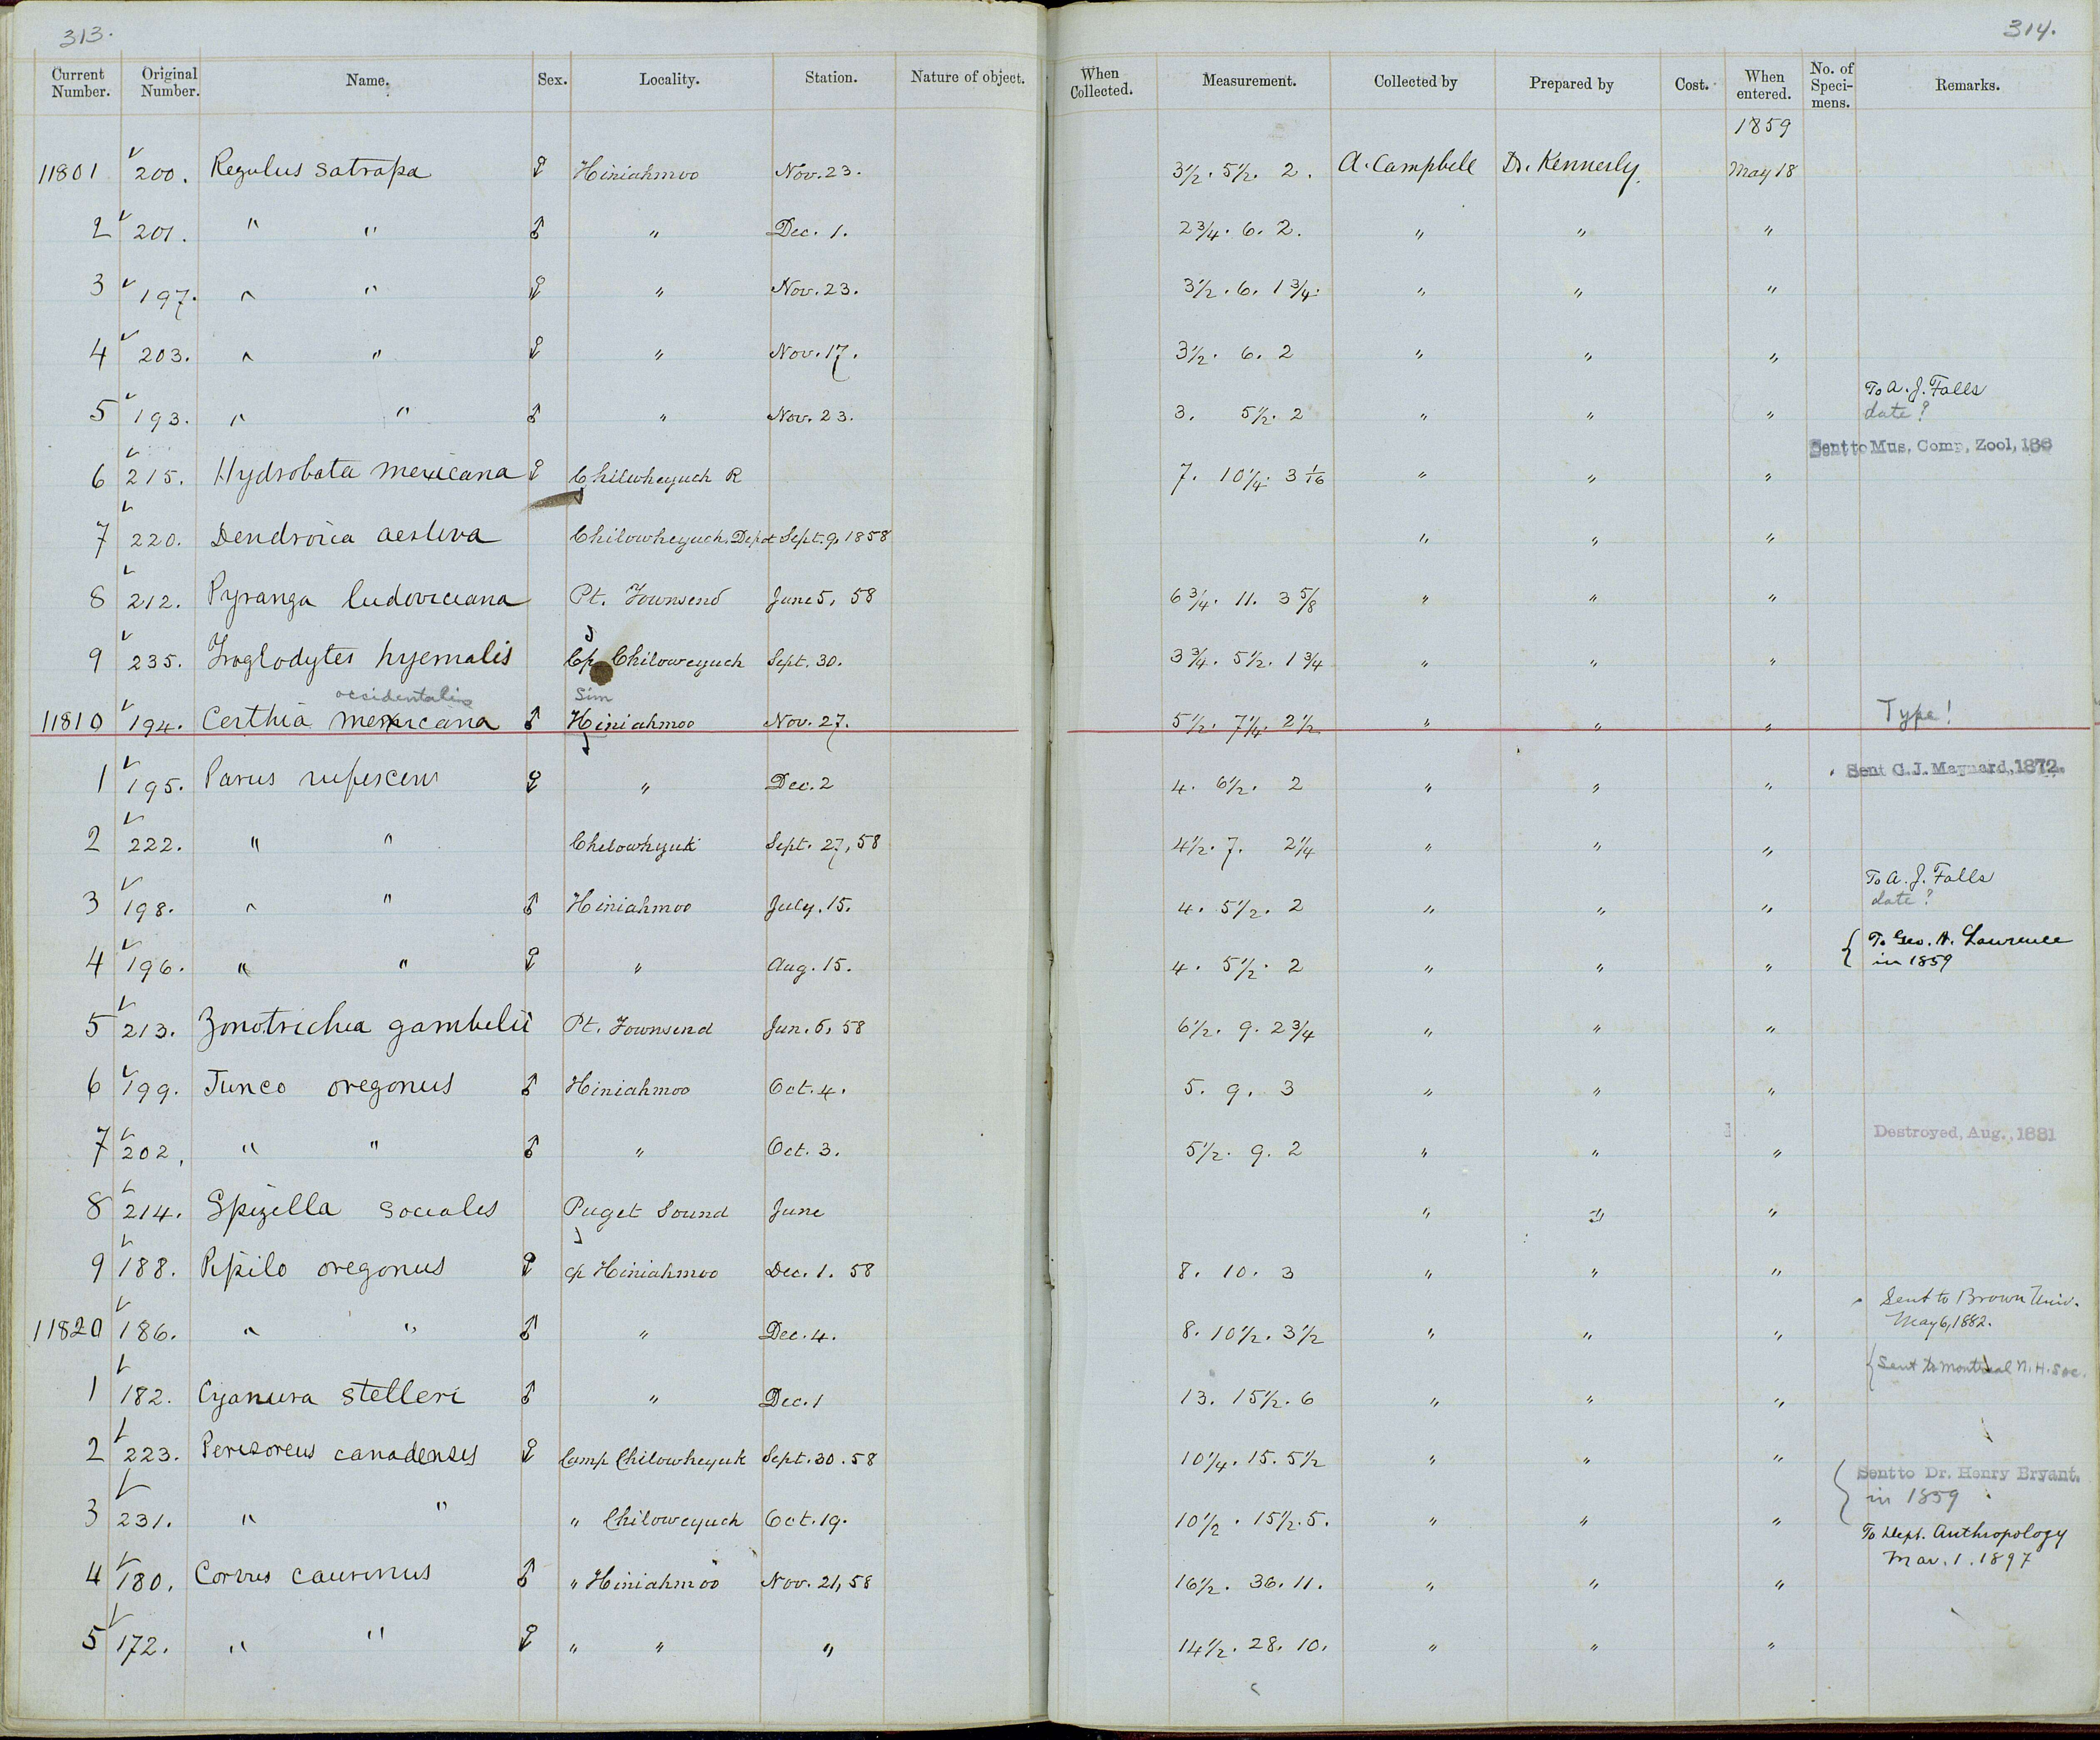 313.
314.
Current Number. Original Number. Name. Sex. Locality. Station. Nature of object. When Collected. Measurement. Collected by Prepared by Cost. When entered. No. of Speci-mens. Remarks.
1859
11801 200. Regulus satrapa ♀ Hiniahmoo Nov. 23. 3½. 5½. 2. A. Campbell Dr. Kennerly. May 18
2 201. " " ♂ " Dec. 1. 2¾. 6. 2. " " "
3 197. " " ♀ " Nov. 23. 3½. 6. 1¾. " " "
4 203. " " ♀ " Nov. 17. 3½. 6. 2 " " "
To A. J. Falls
5 193. " " ♂ " Nov. 23. 3. 5½. 2 " " " date?
Sent to Mus. Comp. Zool, 186
6 215. Hydrobata mexicana ♀ Chilowheyuch R 7. 10¼. 3 1/16 " " "
7 220. Dendroica aestiva Chilowheyuch. Depot Sept. 9, 1858 " " "
8 212. Pyranga ludoviciana Pt. Townsend June 5, 58 6¾. 11. 3⅝ " " "
9 235. Troglodytes hyemalis Cp Chiloweyuch Sept. 30. 3¾. 5½. 1¾ " " "
occidentalis Sim
11810 194. Certhia mexicana ♂ Hiniahmoo Nov. 27. 5½. 7¼. 2½ " " " Type!
Sent C. J. Maynard, 1872.
1 195. Parus rufescens ♀ " Dec. 2 4. 6½. 2 " " "
2 222. " " Chilowhyuk Sept. 27, 58 4½. 7. 2¼ " " "
To A. J. Falls
3 198. " " ♂ Hiniahmoo July. 15. 4. 5½. 2 " " " date?
To Geo. N. Lawrence
4 196. " " ♀ " Aug. 15. 4. 5½. 2 " " " in 1859
5 213. Zonotrichia gambelii Pt. Townsend Jun. 5, 58 6½. 9. 2¾ " " "
6 199. Junco oregonus ♂ Hiniahmoo Oct. 4. 5. 9. 3 " " "
Destroyed, Aug., 1881
7 202, " " ♂ " Oct. 3. 5½. 9. 2 " " "
8 214. Spizella socialis Puget Sound June " " "
9 188. Pipilo oregonus ♀ Cp Hiniahmoo Dec. 1. 58 8. 10. 3 " " "
Sent to Brown Univ.
May 6, 1882.
11820 186. " " ♂ " Dec. 4. 8. 10½. 3½ " " "
Sent to Montreal N. H. Soc.
1 182. Cyanura stelleri ♂ " Dec. 1 13. 15½. 6 " " "
2 223. Perisoreus canadensis ♀ Camp Chilowheyuk Sept. 30. 58 10¼. 15. 5½ " " "
Sent to Dr. Henry Bryant.
in 1859
3 231. " " " Chiloweyuch Oct. 19. 10½. 15½. 5. " " "
To Dept. Anthropology
Mar. 1. 1897
4 180. Corvus caurinus ♂ " Hiniahmoo Nov. 21, 58 16½. 36. 11. " " "
5 172. " " ♀ " " " 14½. 28. 10. " " "